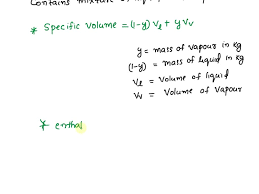 contains mixture of
* Specific Volume = (1-y) Vℓ + y Vv
y = mass of vapour in kg
(1-y) = mass of liquid in kg
Vℓ = Volume of liquid
Vv = Volume of Vapour
* enthal